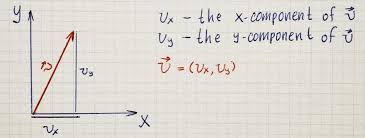 y
v⃗
v_y
x
v_x
v_x - the x-component of v⃗
v_y - the y-component of v⃗
v⃗ = (v_x, v_y)